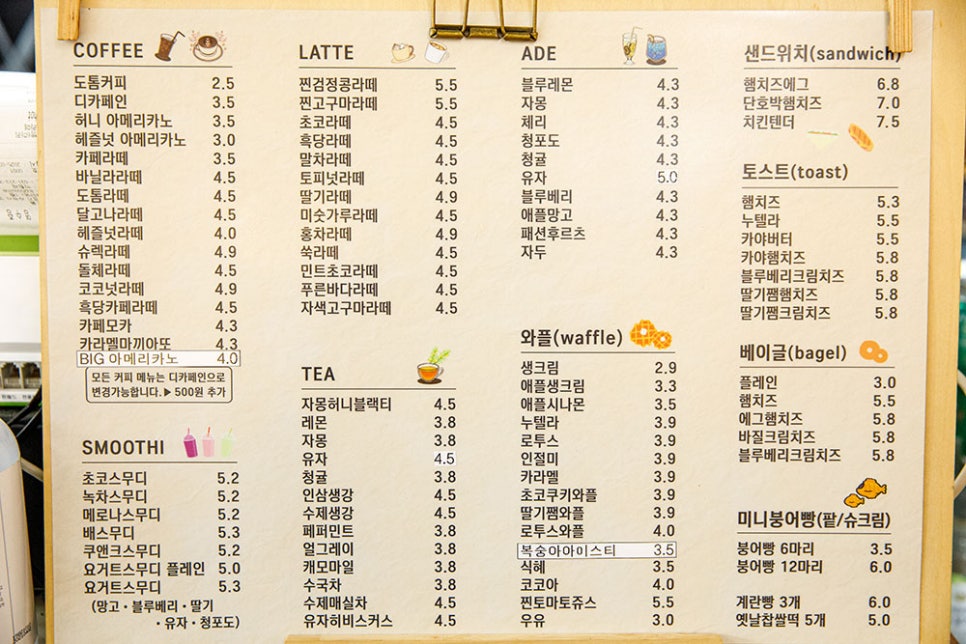 COFFEE
도톰커피 2.5
디카페인 3.5
허니 아메리카노 3.5
헤즐넛 아메리카노 3.0
카페라떼 3.5
바닐라라떼 4.5
도톰라떼 4.5
달고나라떼 4.5
헤즐넛라떼 4.0
슈렉라떼 4.9
돌체라떼 4.5
코코넛라떼 4.9
흑당카페라떼 4.5
카페모카 4.3
카라멜마끼아또 4.3
BIG 아메리카노 4.0
모든 커피 메뉴는 디카페인으로
변경가능합니다.▶ 500원 추가
SMOOTHI
초코스무디 5.2
녹차스무디 5.2
메로나스무디 5.2
배스무디 5.3
쿠앤크스무디 5.2
요거트스무디 플레인 5.0
요거트스무디 5.3
(망고・블루베리・딸기
・유자・청포도)
LATTE
찐검정콩라떼 5.5
찐고구마라떼 5.5
초코라떼 4.5
흑당라떼 4.5
말차라떼 4.5
토피넛라떼 4.5
딸기라떼 4.9
미숫가루라떼 4.5
홍차라떼 4.9
쑥라떼 4.5
민트초코라떼 4.5
푸른바다라떼 4.5
자색고구마라떼 4.5
TEA
자몽허니블랙티 4.5
레몬 3.8
자몽 3.8
유자 4.5
청귤 3.8
인삼생강 4.5
수제생강 4.5
페퍼민트 3.8
얼그레이 3.8
캐모마일 3.8
수국차 3.8
수제매실차 4.5
유자히비스커스 4.5
ADE
블루레몬 4.3
자몽 4.3
체리 4.3
청포도 4.3
청귤 4.3
유자 5.0
블루베리 4.3
애플망고 4.3
패션후르츠 4.3
자두 4.3
와플(waffle)
생크림 2.9
애플생크림 3.3
애플시나몬 3.5
누텔라 3.9
로투스 3.9
인절미 3.9
카라멜 3.9
초코쿠키와플 3.9
딸기쨈와플 3.9
로투스와플 4.0
복숭아아이스티 3.5
식혜 3.5
코코아 4.0
찐토마토쥬스 5.5
우유 3.0
샌드위치(sandwich)
햄치즈에그 6.8
단호박햄치즈 7.0
치킨텐더 7.5
토스트(toast)
햄치즈 5.3
누텔라 5.5
카야버터 5.5
카야햄치즈 5.8
블루베리크림치즈 5.8
딸기쨈햄치즈 5.8
딸기쨈크림치즈 5.8
베이글(bagel)
플레인 3.0
햄치즈 5.5
에그햄치즈 5.8
바질크림치즈 5.8
블루베리크림치즈 5.8
미니붕어빵(팥/슈크림)
붕어빵 6마리 3.5
붕어빵 12마리 6.0
계란빵 3개 6.0
옛날찹쌀떡 5개 5.0